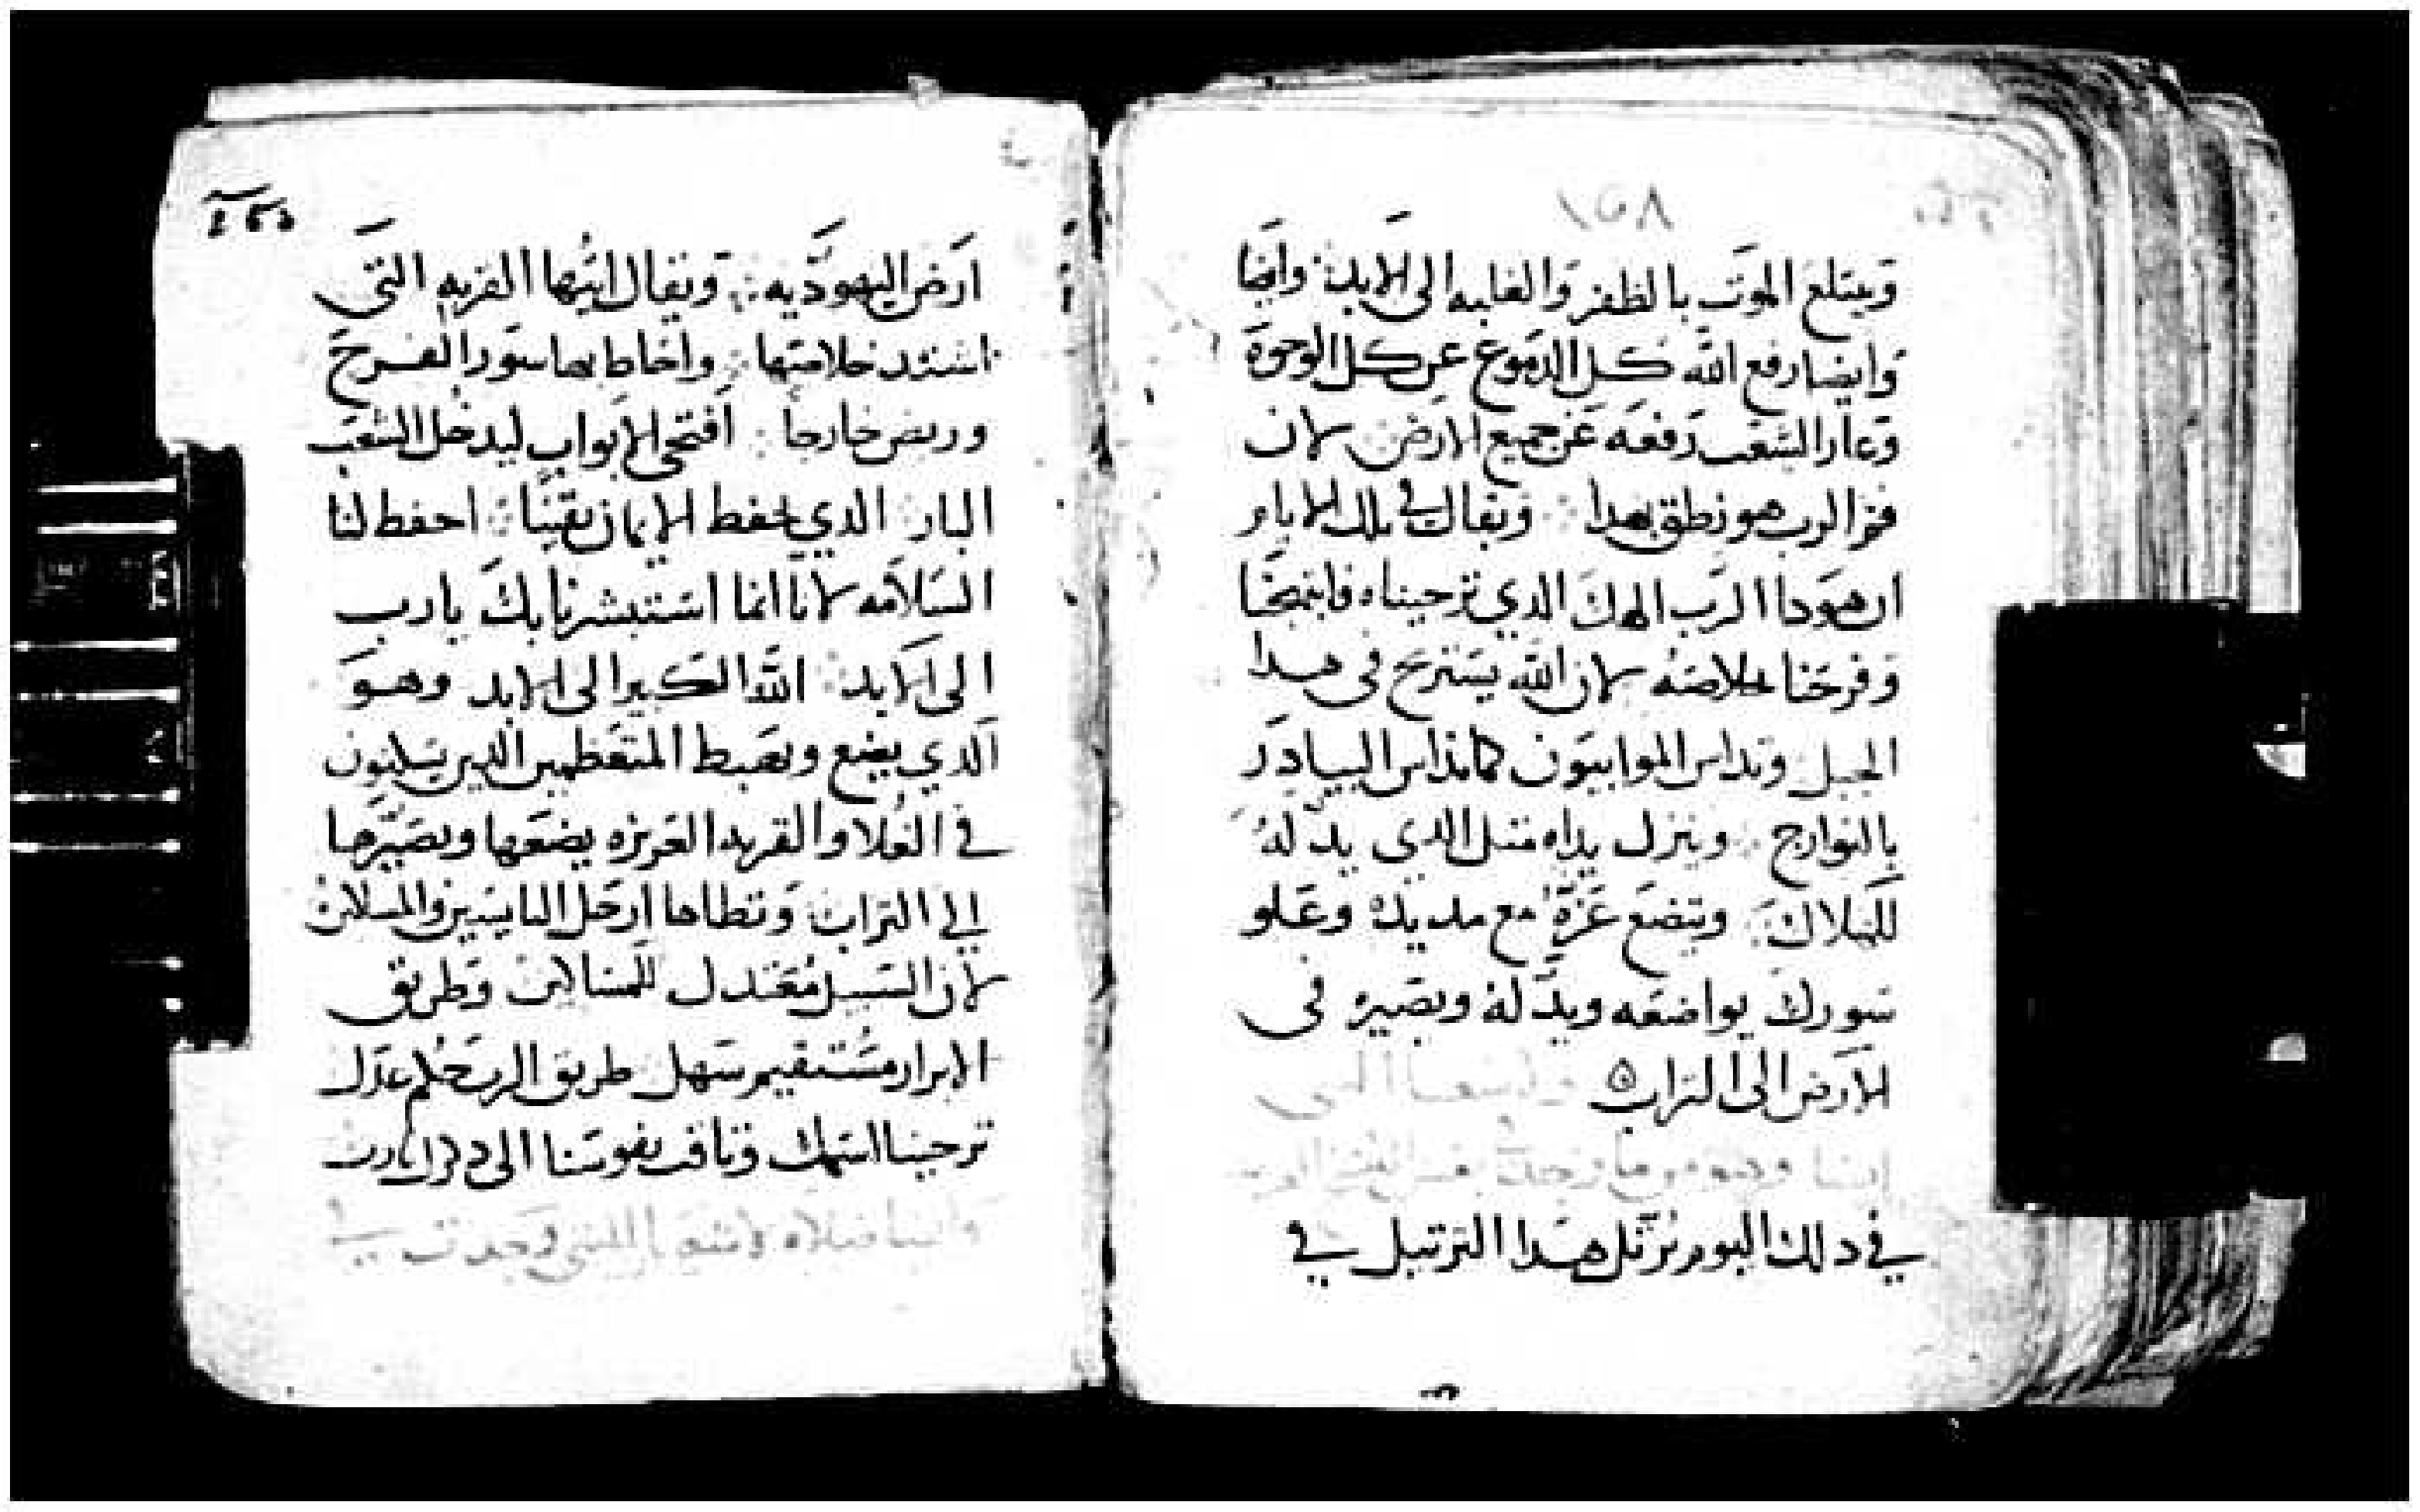 ١٥٨
ويبتلع الموت بالظفر والغلبه الى الابد: وايضا
وايضا رفع الله كل الدموع عن كل الوجوه
وعار الشعب رفعه عن جميع الارض لان
فم الرب هو نطق بهدا : ويقال في تلك الايام
ان هودا الرب الهك الدي ترجيناه فابتهجنا
وفرحنا بخلاصه لان الله يستريح في هدا
الجبل وتداس الموابيون كما تداس البيادر
بالنوارج : وينزل يداه متل الدي يدله
للهلاك : ويتضع عزه مع مد يديه وعلو
سورك يواضعه ويدله ويصيره في
الارض الى التراب
في دلك اليوم نرتل هدا الترتيل في
ارض اليهوديه : ويقال ايتها القريه التي
اشتد خلاصها : واحاط بها سور الفرج
وربض خارجا : افتحي الابواب ليدخل الشعب
البار : الدي يحفظ الايمان يقينا : احفظ لنا
السلامه لانا انما استبشرنا بك يا رب
الى الابد : الله الكبير الى الابد وهو
الدي يضع ويهبط المتعظمين الدين يسكنون
في العلا والقريه العزيزه يضعها ويصيرها
الى التراب وتطاها ارجل البايسين والمساكين
لان السبيل معتدل للمساكين وطريق
الابرار مستقيم سهل طريق الرب حكم عدل
ترجينا اسمك وتاقت نفوسنا الى دكرك يا رب